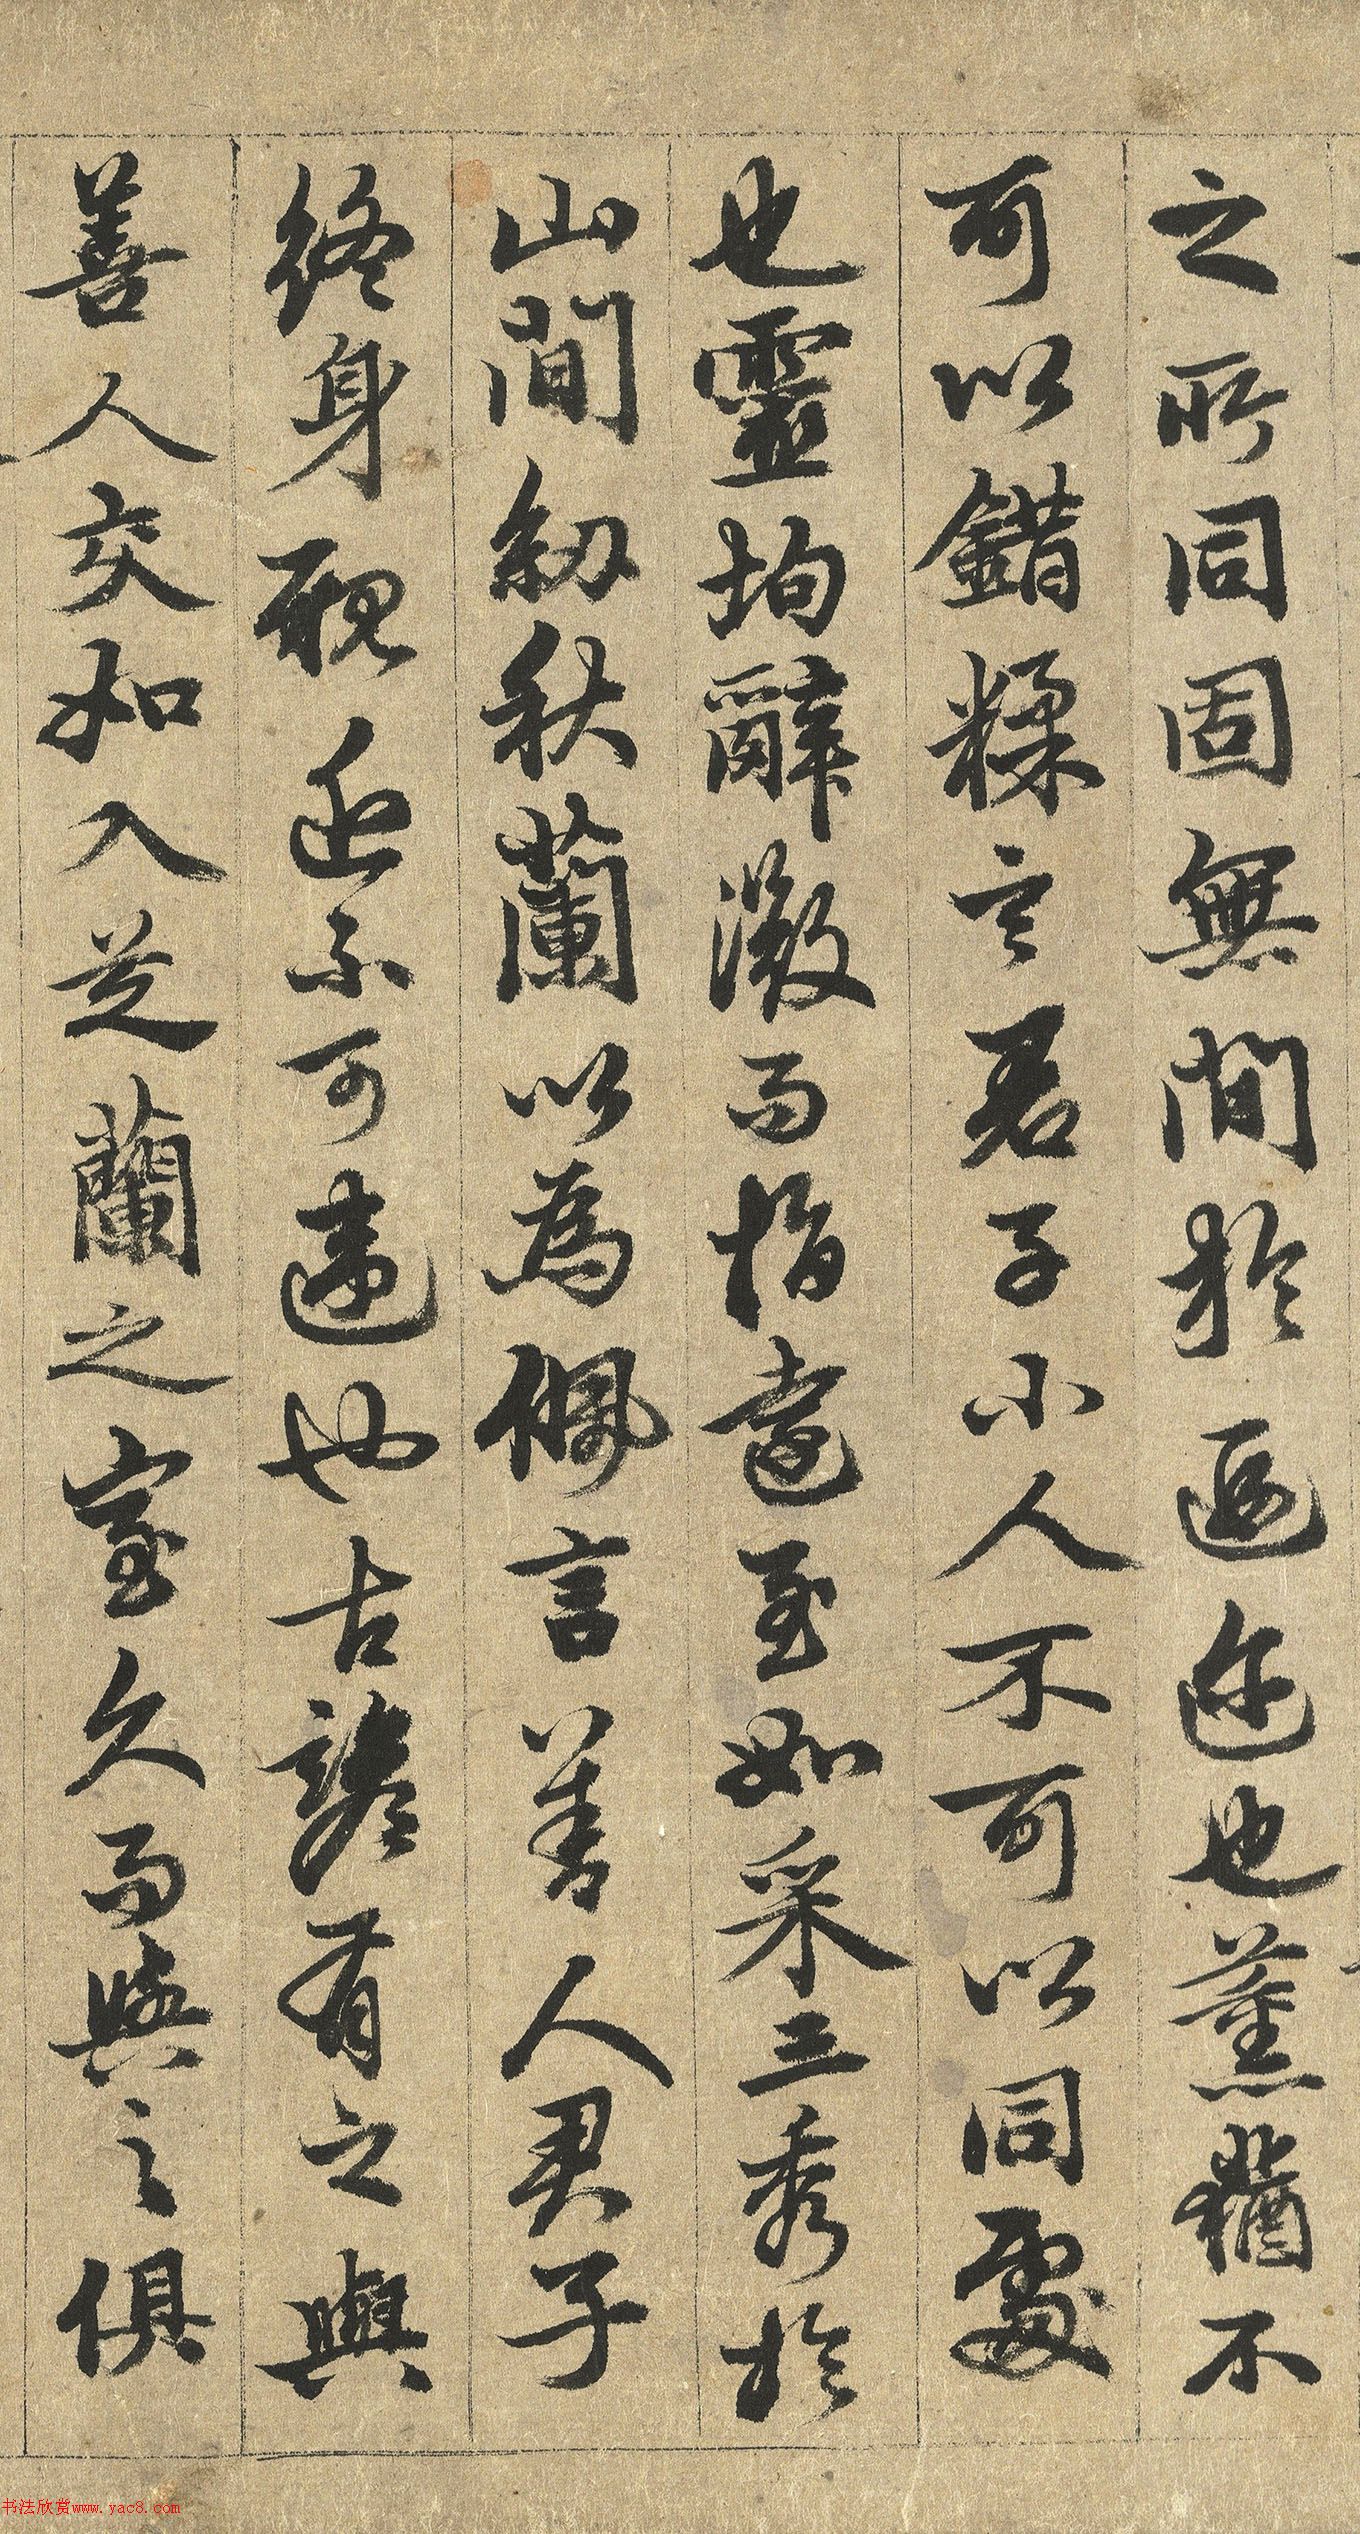 之所同固無間於遐迩也薰蕕不
可以錯糅言君子小人不可以同處
也靈均辭激而指遠至如采三秀於
山間紉秋蘭以為佩言善人君子
終身親近不可違也古諺有之與
善人交如入芝蘭之室久而與之俱
书法欣赏www.yac8.com